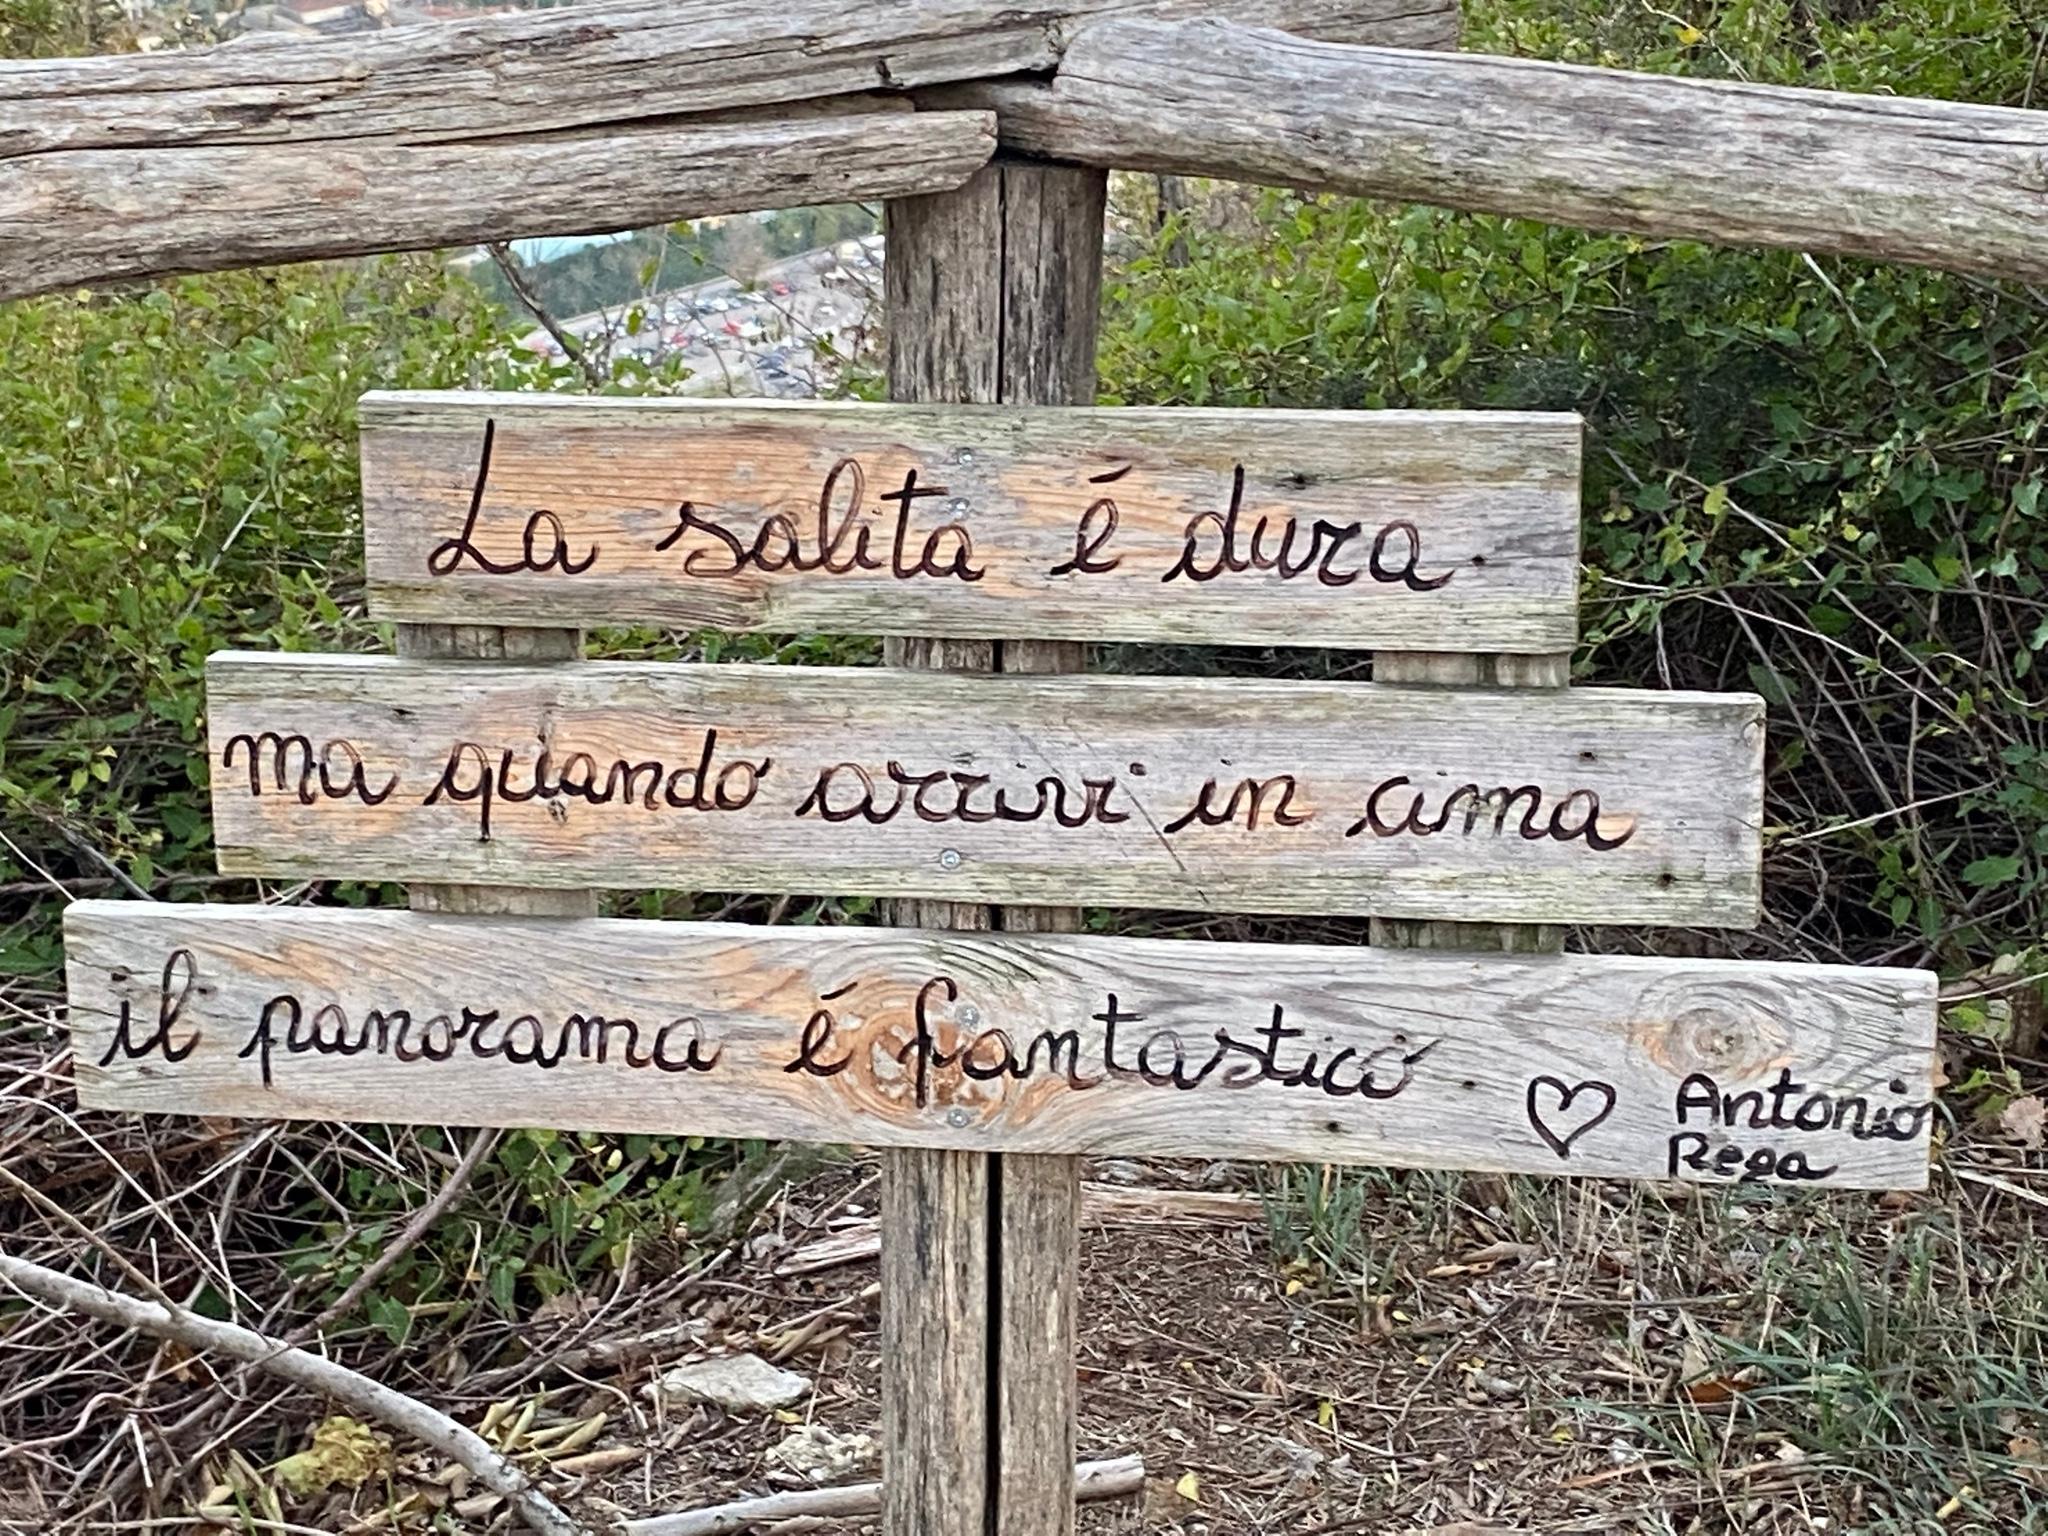 La salita é dura
ma quando arrivi in cima
il panorama é fantastico
Antonio
Rega